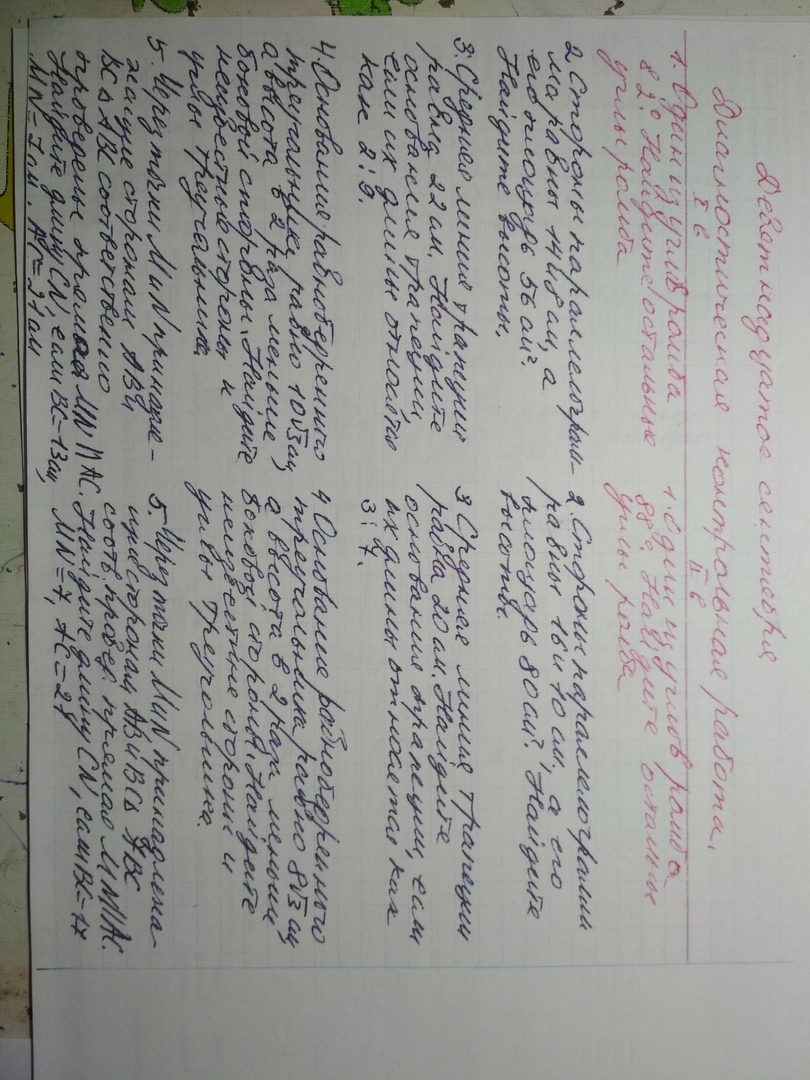 Девятнадцатое сентября
Диагностическая контрольная работа.
I в
1. Один из углов ромба
82°. Найдите остальные
углы ромба
2. Стороны параллелограм-
ма равны 14 и 8 см, а
его площадь 56 см². 
Найдите высоты.
3. Средняя линия трапеции
равна 22 см. Найдите
основания трапеции,
если их длины относятся
как 2:9.
4. Основание равнобедренного
треугольника равно 10√3 см,
а высота в 2 раза меньше
боковой стороны. Найдите
неизвестные стороны и
углы треугольника.
5. Через точки M и N принадле-
жащие сторонам AB и
BC △ ABC соответственно
проведена прямая MN || AC.
Найдите длину CN, если BC = 13 см,
MN = 7 см.
II в
1. Один из углов ромба
88°. Найдите остальные
углы ромба
2. Стороны параллелограмма
равны 16 и 10 см, а его
площадь 80 см². Найдите
высоты.
3 Средняя линия трапеции
равна 20 см. Найдите
основания трапеции, если
их длины относятся как
3:7.
4 Основание равнобедренного
треугольника равно 8√3 см,
а высота в 2 раза меньше
боковой стороны. Найдите
неизвестные стороны и
углы треугольника.
5. Через точки M и N принадлежа-
щие сторонам AB и BC
соотв. провед. прямая
Найдите длину CN, если BC = 17
MN = 7, AC = 28